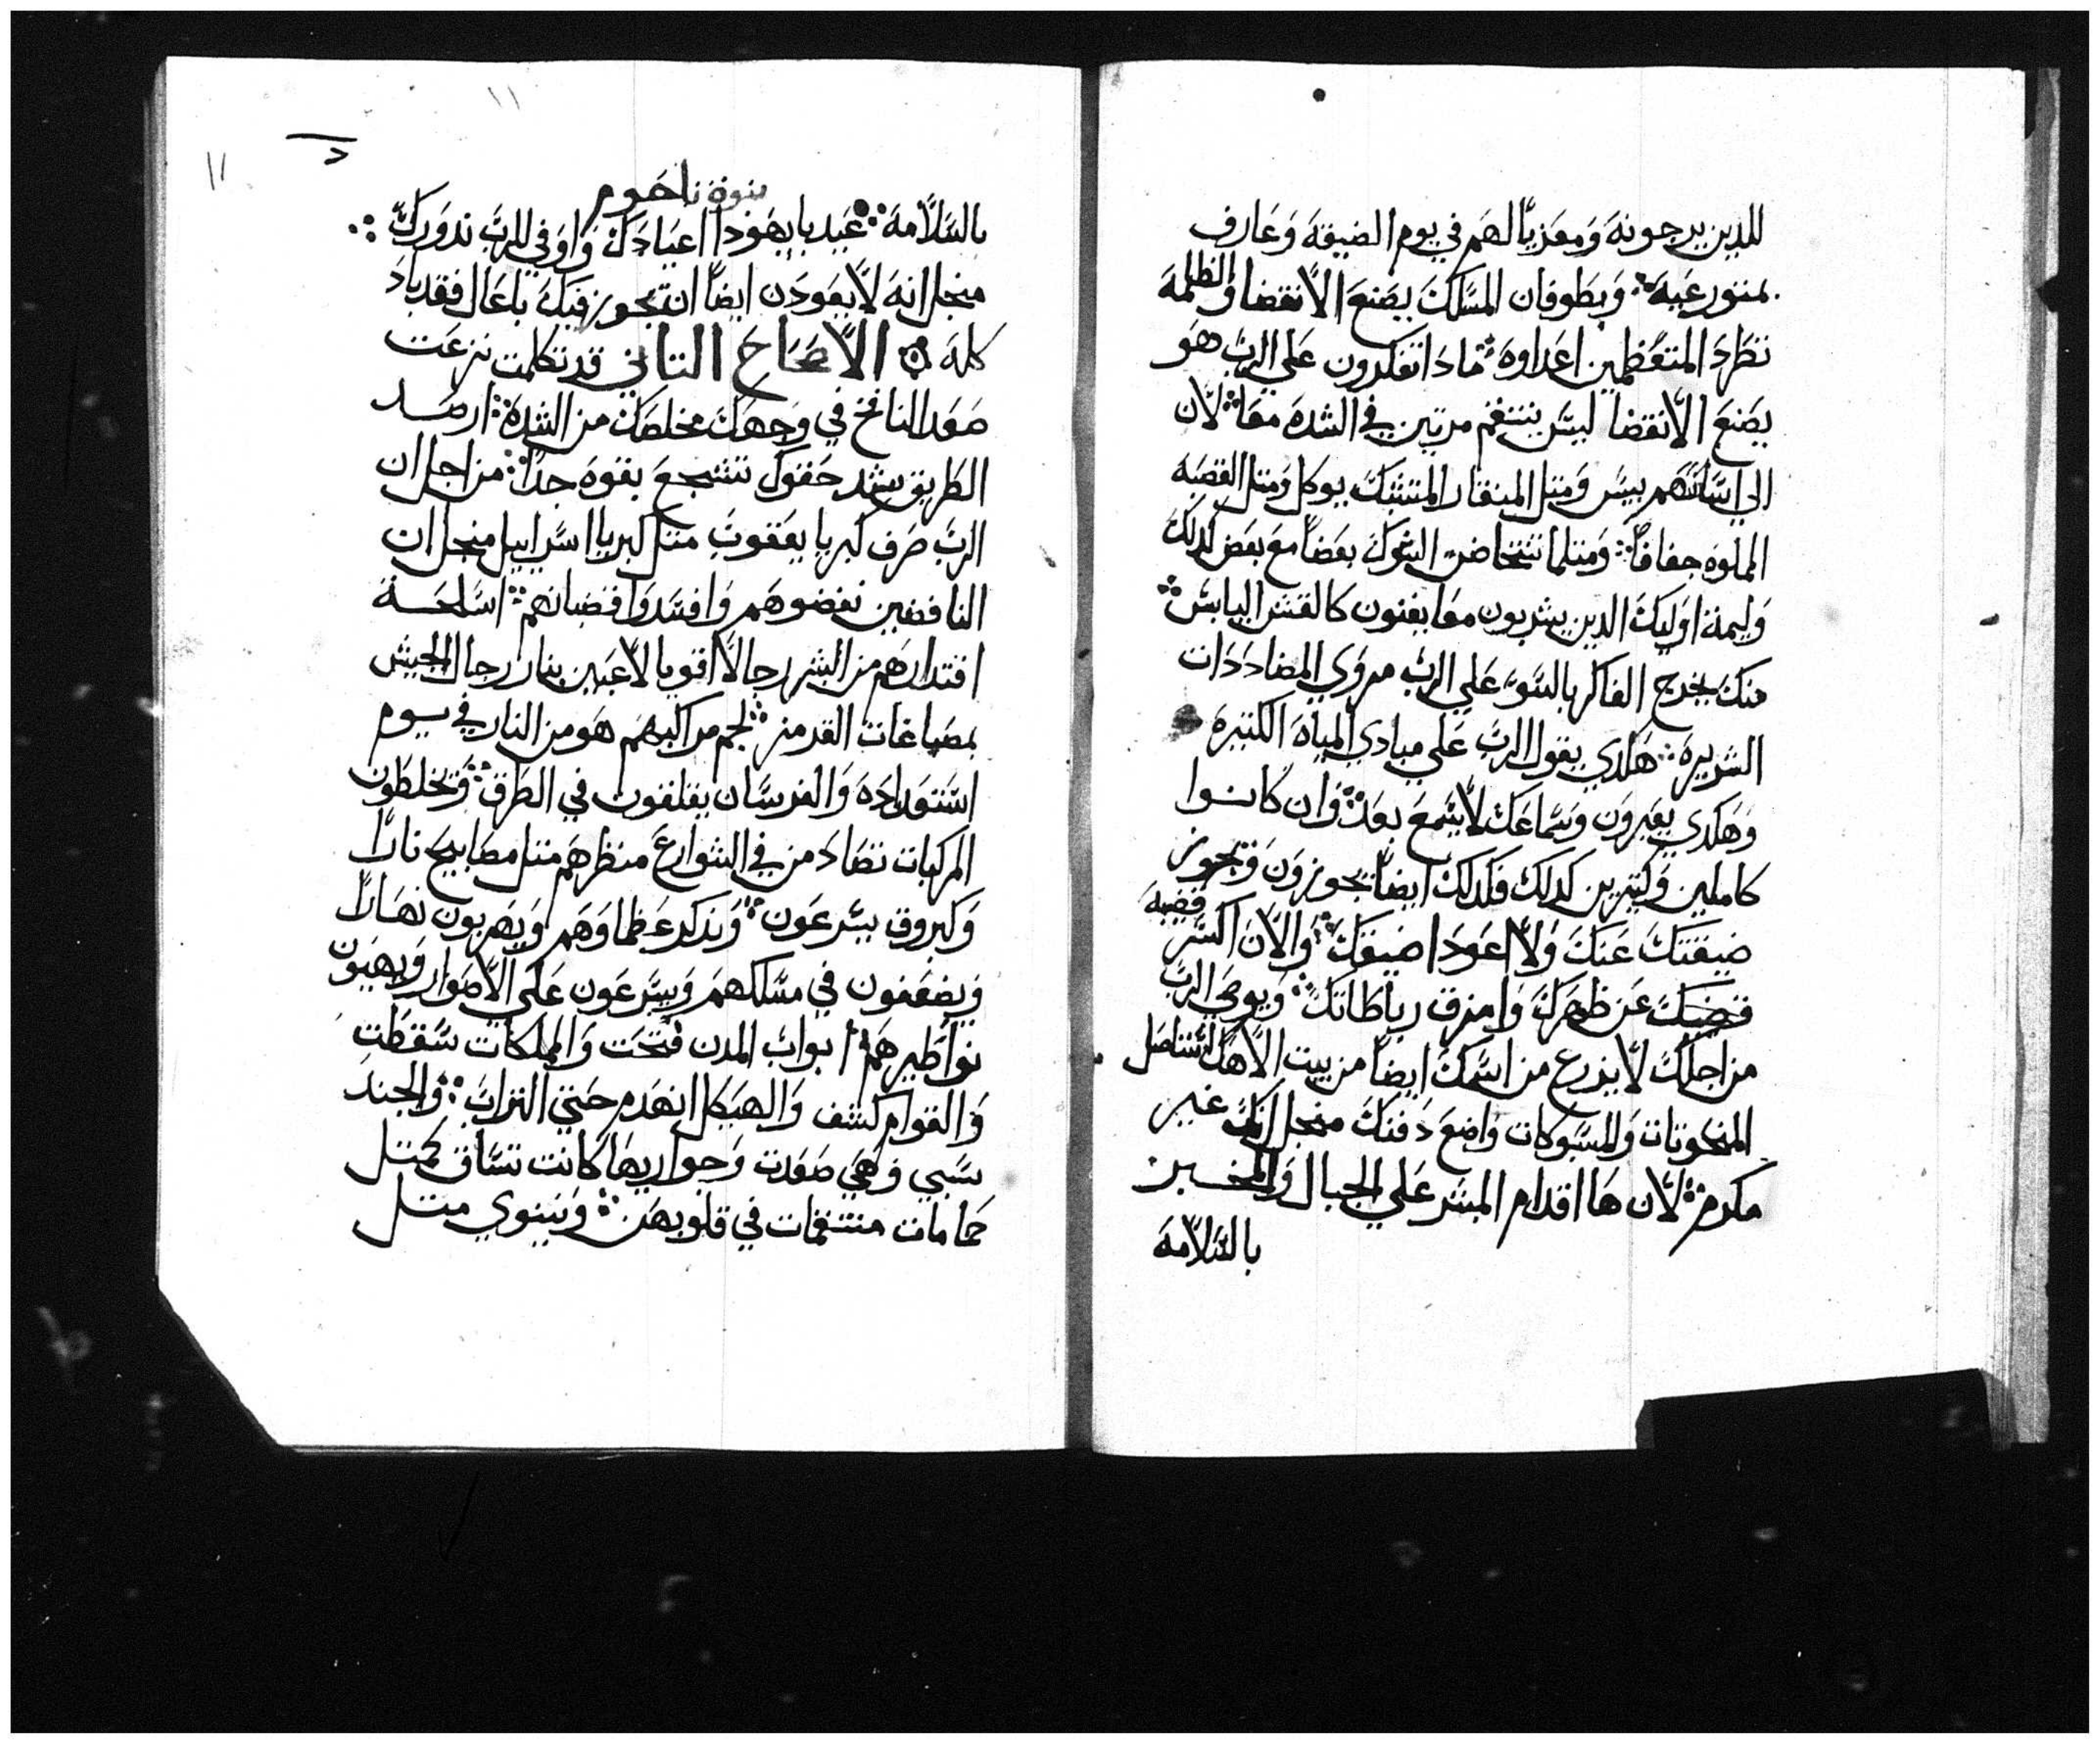 للدين يرجونه ومعزياً لهم في يوم الضيقه وعارف
بمتورعيه وبطوفان المسلك يصنع الانقضا والظلمه
تطرد المتعظمين اعداوه مادا تفكرون علي الرب هو
يصنع الانقضا ليس ينتقم مرتين في الشده معا لان
الي اساستهم ييس ومتل المنقار المتشبك يوكل ومتل القصبه
الملوه جفافاً ومتلما تتخاض الشوك بعضاً مع بعض كدلك
وليمة اوليك الدين يشربون معا يفنون كالقش اليابس
منك يخرج الفاكر بالسوء علي الرب مروي المضاددات
الشريره هكدي يقول الرب علي مبادي المياه الكتيره
وهكدي يعبرون وسماعك لا يسمع بعد وان كانوا
كاملين وكتيرين كدلك فكدلك ايضاً يجوزون وتجوز
ضيقتك عنك ولا اعود اضيقك والان اكسر قضيبه
قضيبك عن ظهرك وامزق رباطاتك ويوصي الرب
من اجلك لا يزرع من اسمك ايضاً من بيت الاهك لتستاصل
المنحوتات والمسبوكات واضع دفنك منجل انك غير
مكرم لان ها اقدام المبشر علي الجبال والمخبرين
بالسلامه
١١
١١
بنوة ناحوم
بالسلامه عيد يا يهودا اعيادك واوفي للرب ندورك
منجل انه لا يعودن ايضاً ان تجوز فيك بلعال فقد باد
كله الاصحاح التاني قد تكلمت نزعت
صعد النافخ في وجهك مخلصك من الشده ارصد
الطريق شد حقوك تشجع بقوه جداً من اجل ان
الرب صرف كبريا يعقوب متل كبريا اسراييل منجل ان
النافضين نفضوهم وافسدوا قضبانهم اسلحة
اقتدارهم من البشر رجالاً اقويا لاعبين بنار رجال الجيش
بصباغات القرمز لجم مراكبهم هو من النار في يوم
استعداده والفرسان يقلقون في الطرق وتختلطون
المركبات تصادمن في الشوارع منظرهم متل مصابيح ناراً
وكبروق يسرعون وتدكر عظماوهم ويهربون نهاراً
ويضعفون في مسلكهم ويسرعون علي الاصوار ويهيون
نواطيرهم ابواب المدن فتحت والمملكات سقطت
والقوام كشف والهيكل انهدم حتي التراب والجند
سبي وهي صعدت وجواريها كانت تساق كمتل
حمامات متنغمات في قلوبهن ونينوي متل